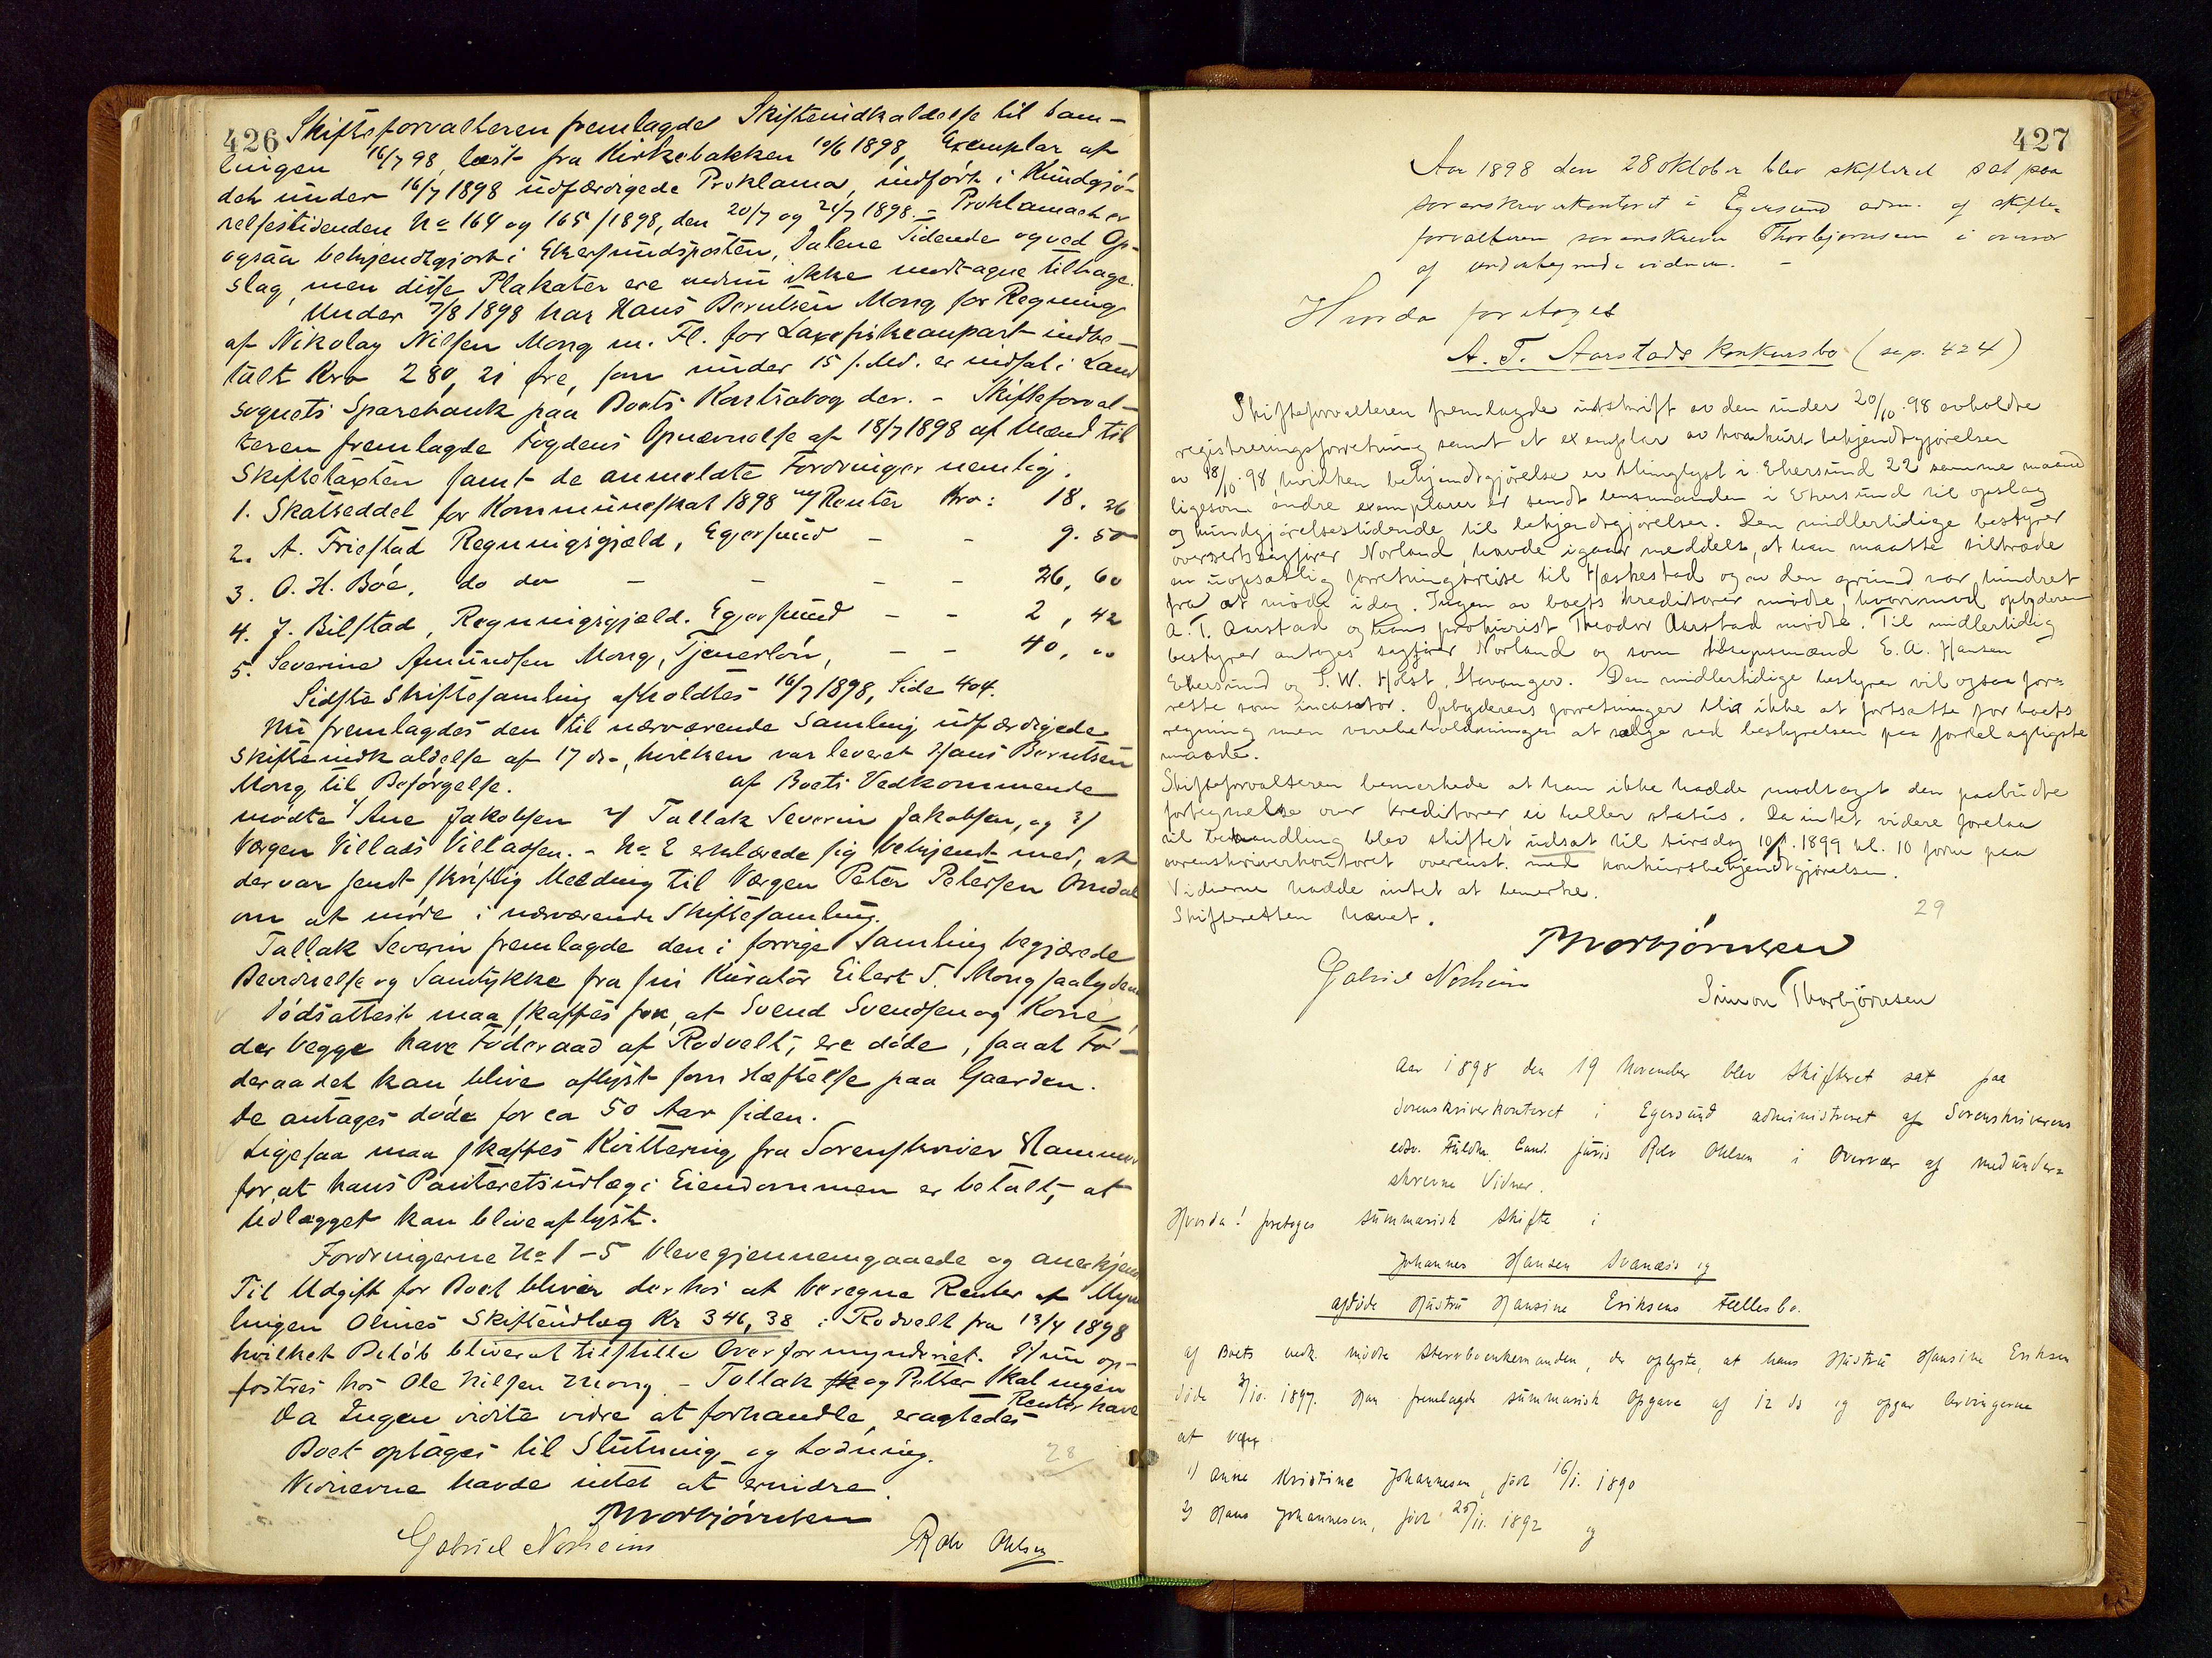 426 Skifteforvalteren fremlagde Skifteindkaldelse til Sam-
lingen 16/7 98, læst fra Kirkebakken 10/6 1898, Exemplar af
det under 16/7 1898 udfærdigede Proklama, indført i Kundgjø-
relsestidenden No 164 og 165/1898, den 20/7 og 21/7 1898. - Proklamaet er
ogsaa bekjendtgjort i Ekersundsposten, Dalene Tidende og ved Op-
slag, men disse Plakater ere endnu ikke modtagne tilbage.
Under 7/8 1898 har Hans Berntsen Mong for Regning
af Nikolay Nilsen Mong m. Fl. for Laxefiskeanpart indbe-
talt Kro 280, 21 øre, som under 15 s. Md. er indsat i Land
sognets Sparebank paa Boets Kontrabog der. - Skifteforval-
teren fremlagde Fogdens Opnævnelse af 18/7 1898 af Mænd til
Skiftetaxten samt de anmeldte Fordringer nemlig.
1. Skatseddel for Kommuneskat 1898 og Renter Kro: 18. 26
2. A. Friestad Regningsgjæld, Egersund - - 9. 50
3. O. H. Bøe, do do - - - - 26, 60
4. J. Bilstad, Regningsgjæld. Egersund - - 2, 42
5. Severine Amundsen Mong, Tjenerløn, - - 40, "
Sidste Skiftesamling afholdtes 16/7 1898, Side 404.
Nu fremlagdes den til nærværende Samling udfærdigede
Skifteindkaldelse af 17 ds, hvilken var leveret Hans Berntsen
Mong til Besørgelse. af Boets Vedkommende
mødte 1/ Ane Jakobsen 2/ Tallak Severin Jakobsen, og 3/
Værgen Villads Villadsen. - No 2 erklærede sig bekjendt med, at
der var sendt skriftlig Melding til Værgen Peter Petersen Omdal
om at møde i nærværende Skiftesamling.
Tallak Severin fremlagde den i forrige Samling begjærede
Bevidnelse og Samtykke fra sin Kurator Eilert T. Mong saalydende
Dødsattest maa skaffes for, at Svend Svendsen og Kone,
der begge have Føderaad af Rodvelt, ere døde, saa at Fø-
deraadet kan blive aflyst som Hæftelse paa Gaarden.
De antages døde for ca 50 Aar siden.
Ligesaa maa skaffes Kvittering fra Sorenskriver Hammer
for, at hans Panteretsudlæg i Eiendommen er betalt, at
Udlægget kan blive aflyst.
Fordringerne No 1 - 5 bleve gjennemgaaede og anerkjendt
Til Udgift for Boet bliver derhos at beregne Renter af Mynd
lingen Olines Skifteudlæg Kr 346, 38 i Rodvelt fra 13/4 1898
hvilket Beløb bliver at tilstille Overformynderiet. Hun op-
fostres hos Ole Nilsen Mong. - Tallak og Petter skal ingen
Renter have
Da Ingen vidste videre at forhandle, eragtedes
Boet optages til Slutning og Lodning. 28
Vidnerne havde intet at erindre.
Thorbjørnsen
Gabriel Norheim Rolv Ohlsen
427
Aar 1898 den 28 oktober blev skifteret sat paa
sorenskriverkontoret i Egersund adm. af skifte-
forvalteren sorenskriver Thorbjørnsen i overvær
af undertegnede vidner. -
Hvorda foretoges
A. T. Aarstads konkursbo (se p. 424)
Skifteforvalteren fremlagde utskrift av den under 20/10. 98 avholdte
registreringsforretning samt et exemplar av konkurs bekjendtgjørelsen
av 18/10. 98 hvilken bekjendtgjørelse er thinglyst i Ekersund 22 samme maaned
ligesom andre exemplarer er sendt lensmanden i Ekersund til opslag
og kundgjørelsestidende til bekjendtgjørelse. Den midlertidige bestyrer
overretssagfører Norland, havde igaar meddelt, at han maatte tiltræde
en uopsættlig forretningsreise til Heskestad og av den grund var hindret
fra at møde idag. Ingen av boets kreditorer mødte, hvorimod opbyderen
A. T. Aarstad og hans prokurist Theodor Aarstad mødte. Til midlertidig
bestyrer antoges sagfører Norland og som tilsynsmænd E. A. Hansen
Ekersund og S. W. Holst, Stavanger. Den midlertidige bestyrer vil ogsaa fore-
rette som incasator. Opbyderens forretninger blir ikke at fortsætte for boets
regning men varebeholdningen at sælge ved bestyrelsen paa fordelagtigste
maade.
Skifteforvalteren bemerkede at han ikke hadde modtaget den paabudte
fortegnelse over kreditorer ei heller status. Da intet videre forelaa
til behandling blev skiftet udsat til tirsdag 10/1. 1899 kl. 10 form paa
sorenskriverkontoret overenst. med konkursbekjendtgjørelsen.
Vidnerne hadde intet at bemerke.
Skifteretten hævet. 29
Thorbjørnsen
Gabriel Norheim
Simon Thorbjørnsen
Aar 1898 den 19 November blev Skifteret sat paa
Sorenskriverkontoret i Egersund administreret af Sorenskriverens
edsv. Fuldm. Cand. juris Rolv Ohlsen i Overvær af medunder-
skrevne Vidner.
Hvorda! foretoges summarisk Skifte i
Johannes Hansen Svanæs og
afdøde Hustru Hansine Eriksens Fællesbo.
af Boets vedk. mødte Stervboenkemanden, der oplyste, at hans Hustru Hansine Eriksen
døde 3/10. 1897. Han fremlagde summarisk Opgave af 12 ds og opgav Arvingerne
at være
1) Anne Kristine Johannesen, født 16/1. 1890
2) Hans Johannesen, født 25/11. 1892 og